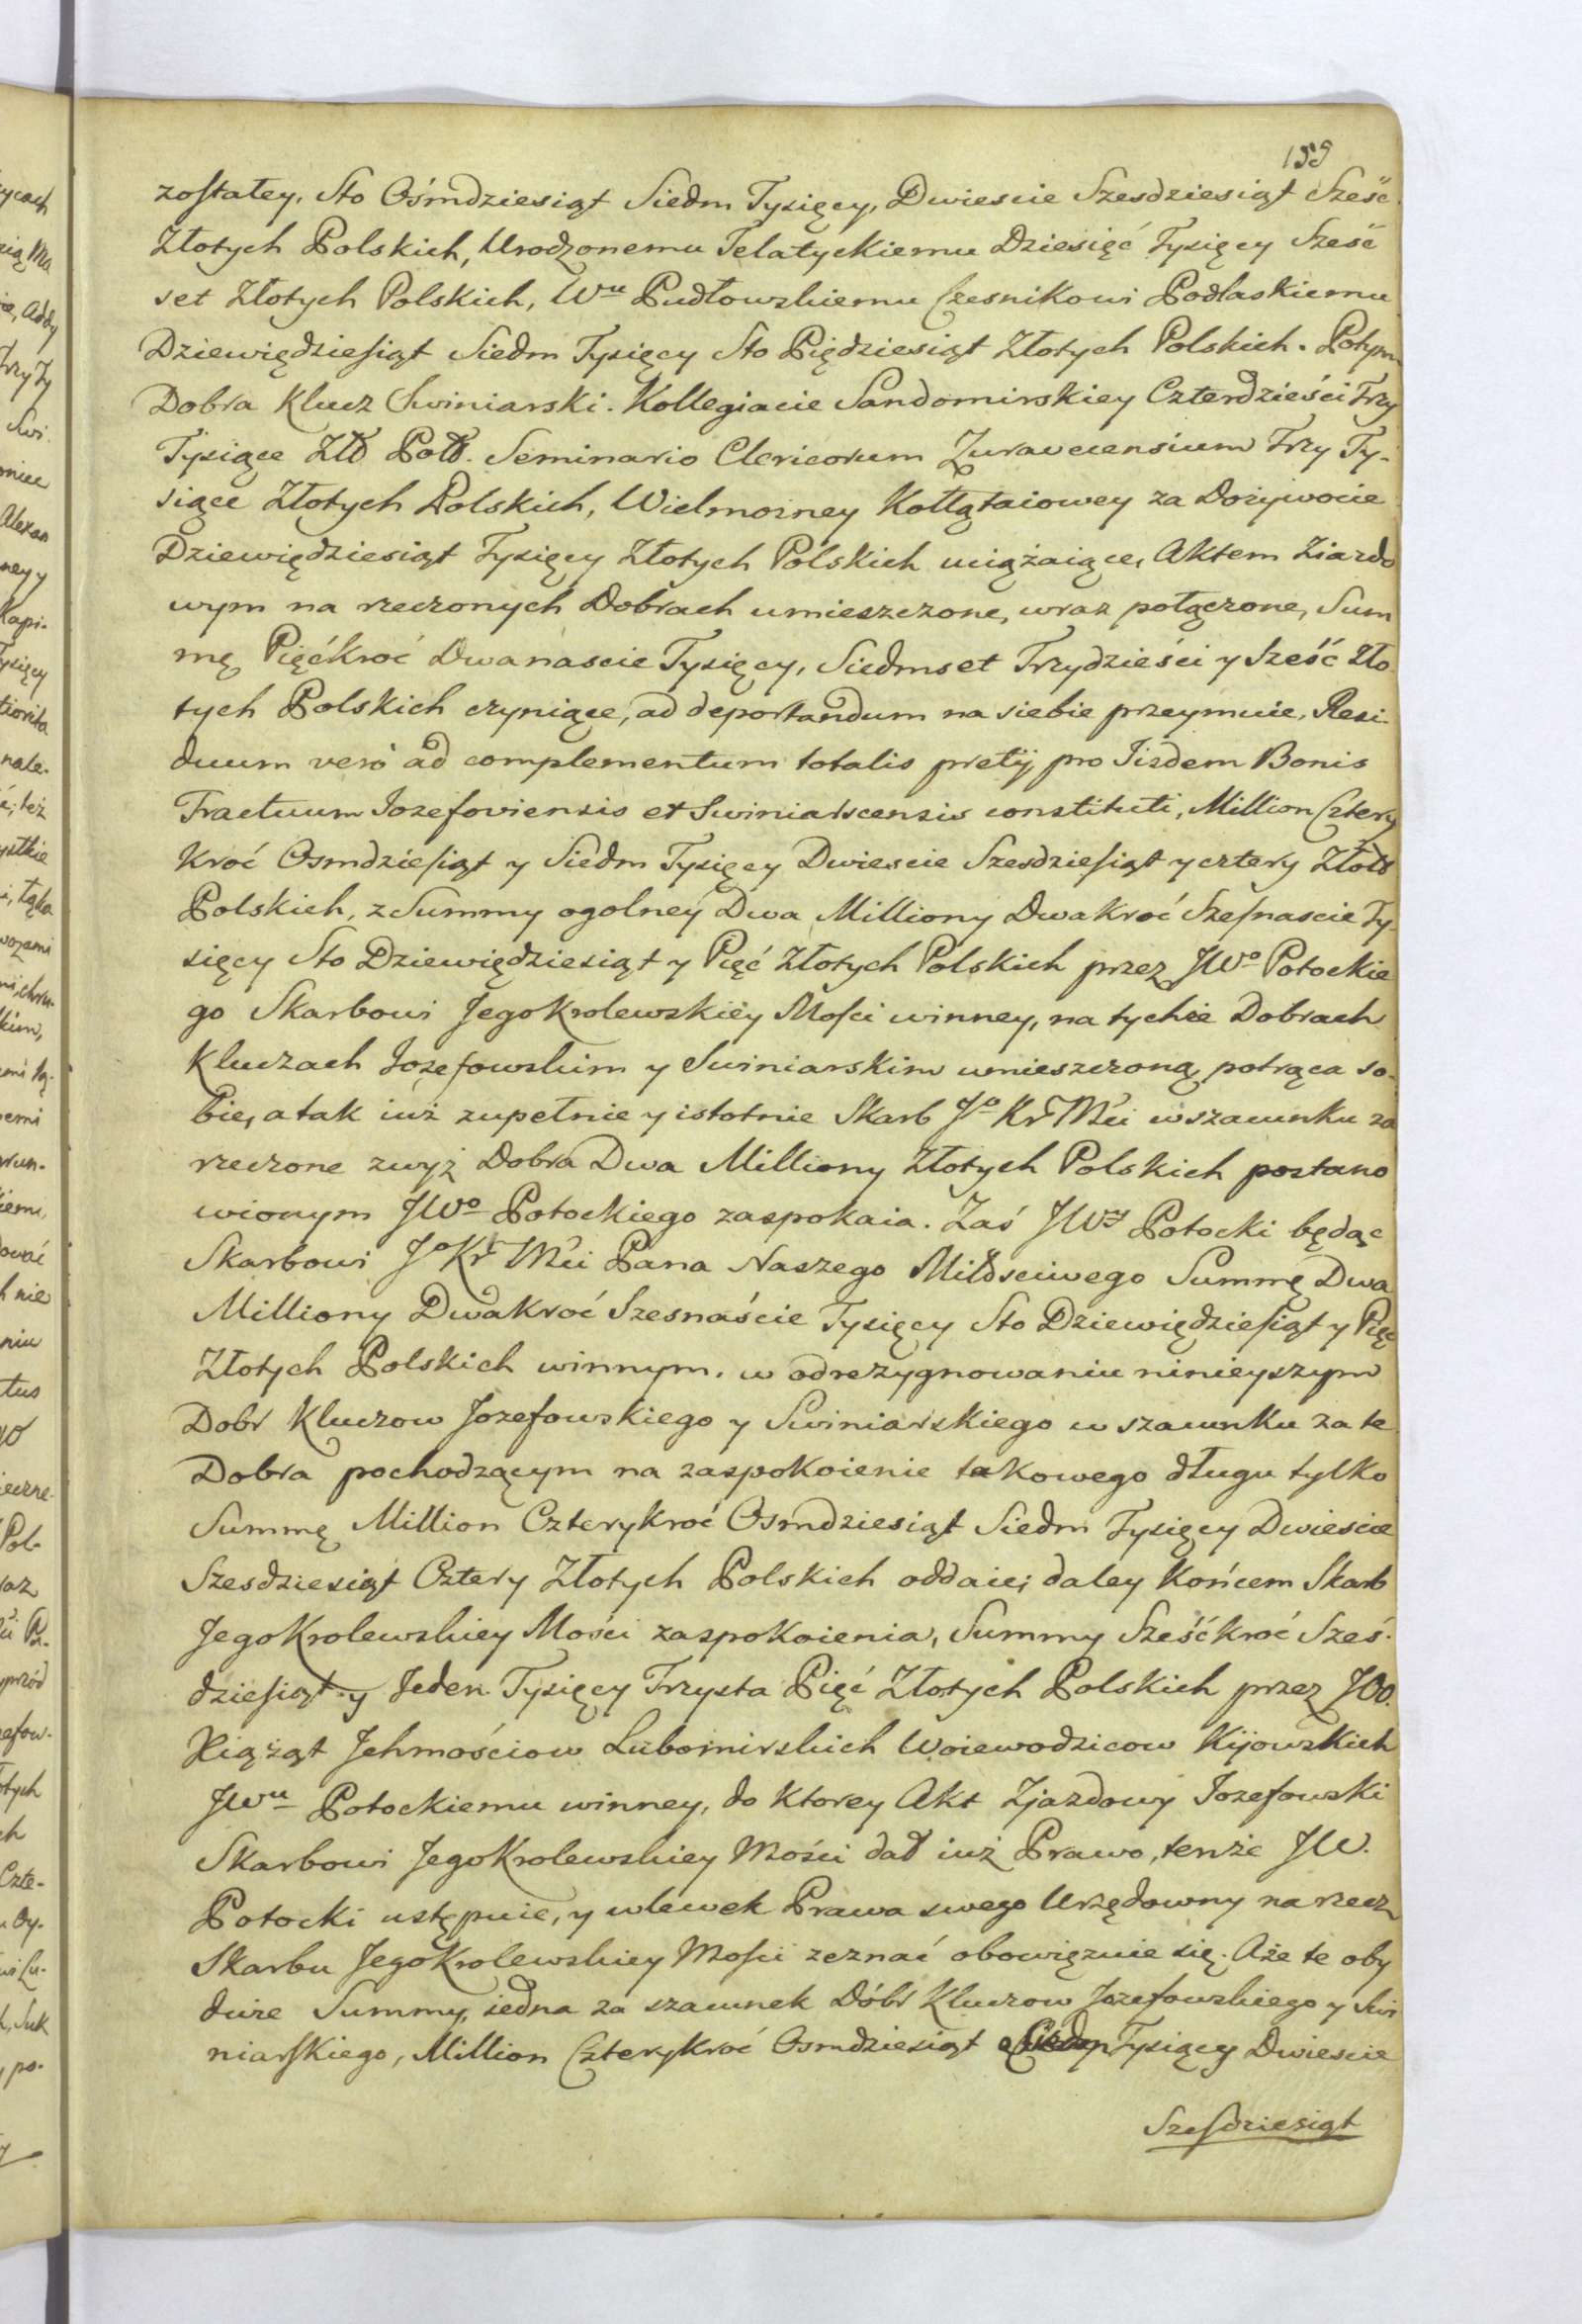 159
zostałey, Sto Ośmdziesiąt Siedm Tysięcy, Dwiescie Szesdziesiąt Sześć
Złotych Polskich, Urodzonemu Telatyckiemu Dziesięć Tysięcy Sześć
set Złotych Polskich, Wu Pudłowskiemu Czesnikowi Podlaskiemu
Dziewiędziesiąt Siedm Tysięcy Sto Piędziesiąt Złotych Polskich. Potym
Dobra Klucz Swiniarski. Kollegiacie Sandomirskiey Czterdzieści Trzy
Tysiące Złł Poll. Seminario Clericorum Zuravecensium Trzy Ty-
siące Złotych Polskich, Wielmożney Kołłątaiowey za Dożywocie
Dziewiędziesiąt Tysięcy Złotych Polskich uciążaiące, Aktem Ziazdo
wym na rzeczonych Dobrach umieszczone, wraz połączone, Sum
mę Pięćkroć Dwanascie Tysięcy, Siedmset Trzydzieści y Sześć Zło
tych Polskich czyniące, ad deportandum na siebie przeymuie, Resi-
duum vero ad complementum totalis pretij pro Iisdem Bonis
Tractuum Iozefoviensis et Swiniarscensis constituti, Million Cztery
Kroć Osmdziesiąt y Siedm Tysięcy Dwiescie Szesdziesiąt y cztery Złott
Polskich, z Summy ogolney Dwa Milliony Dwakroć Szesnascie Ty-
sięcy Sto Dziewiędziesiąt y Pięć Złotych Polskich przez JWo Potockie
go Skarbowi Jego Krolewskiey Mości winney, na tychże Dobrach
Kluczach Jozefowskim y Swiniarskim umieszczoną potrąca so-
bie, a tak iuż zupełnie y istotnie Skarb Jo Kr Mci w szacunku za
rzeczone zwyż Dobra Dwa Milliony Złotych Polskich postano
wionym JWo Potockiego zaspokaia. Zaś JWy Potocki będąc
Skarbowi Jo Kr Mci Pana Naszego Miłościwego Summę Dwa
Milliony Dwakroć Szesnaście Tysięcy Sto Dziewiędziesiąt y Pięć
Złotych Polskich winnym, w odrezygnowaniu ninieyszym
Dobr Kluczow Jozefowskiego y Swiniarskiego w szacunku za te
Dobra pochodzącym na zaspokoienie takowego długu tylko
Summę Million Czterykroć Osmdziesiąt Siedm Tysięcy Dwiescie
Szesdziesiąt Cztery Złotych Polskich oddaie; daley Końcem Skarb
Jego Krolewskiey Mości zaspokoienia, Summy Sześćkroć Sześ-
dziesiąt y Jeden Tysięcy Trzysta Pięć Złotych Polskich przez JOO.
Xiążąt Jehmościow Lubomirskich Woiewodzicow Kijowskich
JWu Potockiemu winney, do Ktorey Akt Zjazdowy Iozefowski
Skarbowi Jego Krolewskiey Mości dał iuż Prawo, tenże JW.
Potocki ustępuie, y wlewek Prawa swego Urzędowny na rzecz
Skarbu Jego Krolewskiey Mości zeznać obowięzuie się. Aże te oby
dwie Summy, iedna za szacunek Dóbr Kluczow Jozefowskiego y Swi
niarskiego, Million Czterykroć Osmdziesiąt Siedm Tysięcy Dwiescie
Szesdziesiąt